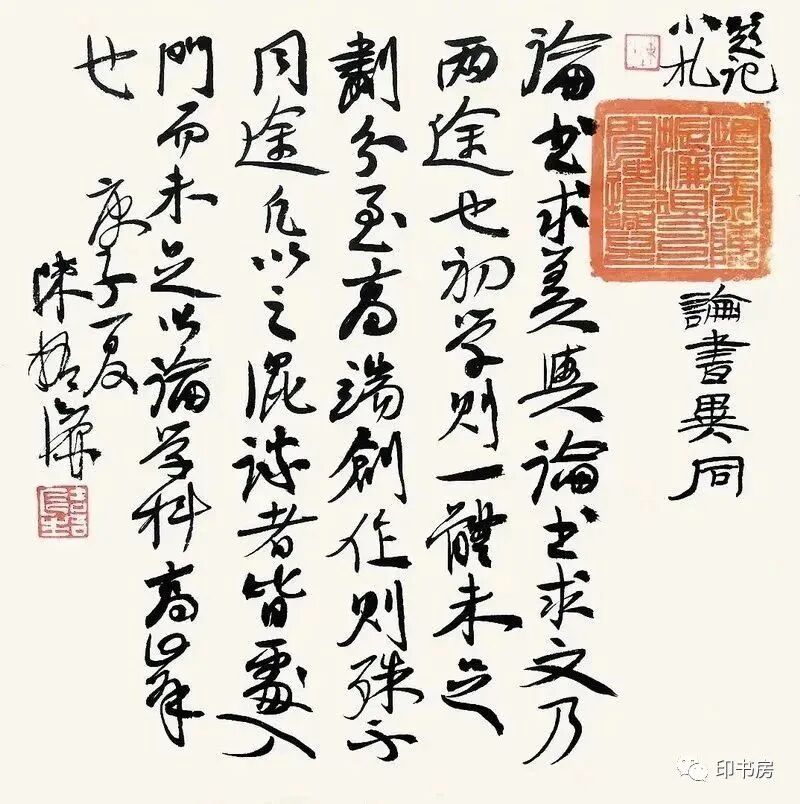 题记
小札
論書異同
論书求美與論书求文乃
两途也初学则一體未足
劃分至高端創作则殊不
同途凡以之混谈者皆處入
門而未足以論学科高峰
也
庚子夏
陳振濂
印书房